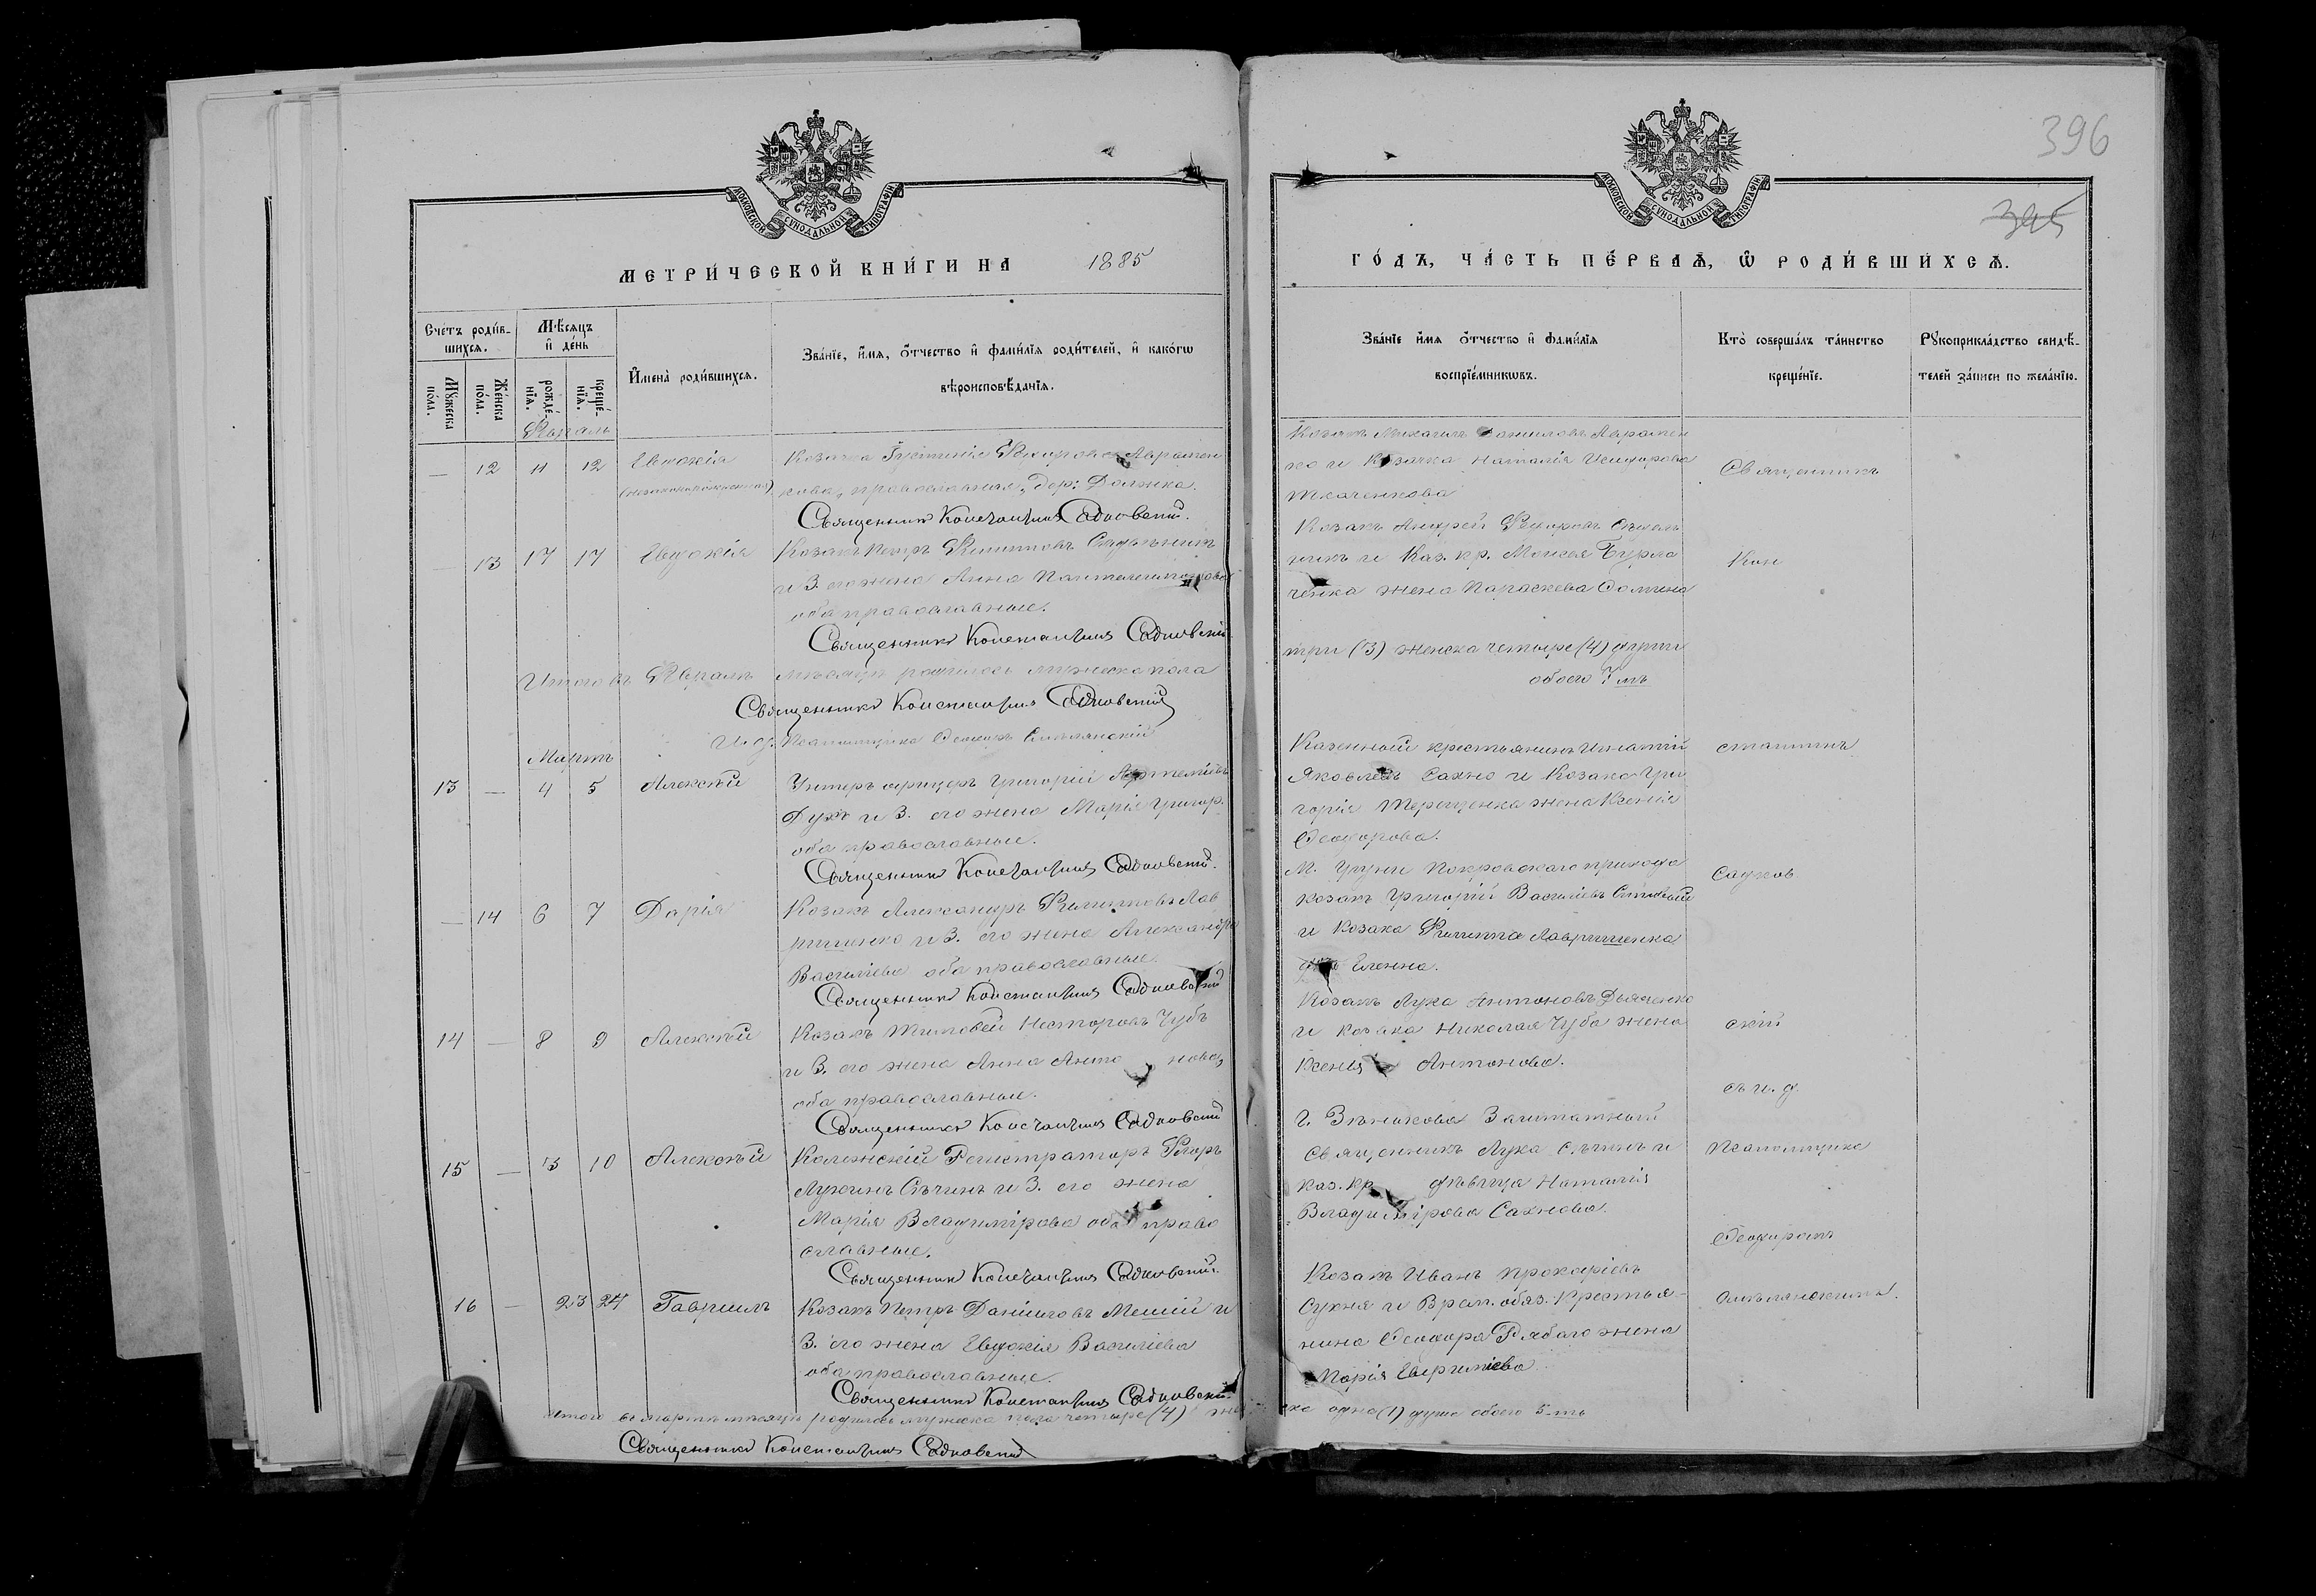 396
395
МОСКОВСКОЙ СѴНОДАЛЬНОЙ ТИПОГРАФІИ
МОСКОВСКОЙ СѴНОДАЛЬНОЙ ТИПОГРАФІИ
МЕТРИ́ЧЕСКОЙ КНИ́ГИ НА 1885
ГО́ДЪ, ЧА́СТЬ ПЕ́РВАѦ, Ѿ РОДИ́ВШИХСѦ.
Сче́тъ роди́в-
шихсѧ.
Мꙋ́жеска по́ла.
Же́нска по́ла.
Мѣ́сѧцъ и҆ де́нь
рожде́-нїѧ.
креще́-нїѧ.
И҆мена̀ роди́вшихсѧ.
Зва́нїе, и҆́мѧ, ѻ҆́тчество и҆ фами́лїѧ роди́телей, и҆ како́гѡ
вѣроисповѣ́данїѧ.
Зва́нїе и҆́мѧ ѻ҆́тчество и҆ фами́лїѧ
воспрїе́мникѡвъ.
Кто̀ соверша́лъ та́инство
креще́нїе.
Рꙋкоприкла́дство свидѣ́-
телей за́писи по жела́нїю.
Февраль
— 12 11 12 Евдокія
(незаконнорожденная)
Козачка Іустинія Федорова Аврамен
кова, православная, дер: Должка.
Священникъ Константинъ Садковскій.
Козакъ Михаилъ Даниловъ Аврамен
ко и Козачка Наталія
Ткаченкова
Священникъ
— 13 17 17 Евдокія
Козакъ Петръ Филиповъ
и З. его жена Анна Пантелеимонова
оба православные.
Священникъ Константинъ Садковскій.
Козакъ Андрей Федоровъ
никъ и Каз. кр. Моисея Бурла
ченка жена Параскева
Кон
Итого въ Февралѣ мѣсяцѣ родилось мужеска пола
три (3) женска четыре (4) души
обоего 7мъ
Священникъ Константинъ Садковскій
И. д. Псаломщика Ѳеофилъ
Мартъ
13 — 4 5 Алексѣй
Унтеръ офицеръ Григорій Артеміевъ
Духъ и З. его жена Марія Григор.
оба православные.
Священникъ Константинъ Садковскій.
Казенный крестьянинъ Игнатій
Яковлевъ Сахно и Козака Гри
горія Терещенка жена Ксенія
Ѳеодорова.
стантинъ
— 14 6 7 Дарія
Козакъ Александръ Филиповъ Лав
риненко и З. его жена Александра
Василіева оба православные.
Священникъ Константинъ Садковскій
М. Покровскаго прихода
козакъ Григорій Василіевъ
и Козака Филиппа
дочь Еленна.
Садков
14 — 8 9 Алексѣй
Козакъ Тимоѳей Несторовъ Чубъ
и З. его жена Анна Анто нова,
оба православные.
Священникъ Константинъ Садковскій
Козакъ Лука Антоновъ Дьяченко
и козака Николая Чуба жена
Ксенія Антонова.
скій
съ и. д.
15 — 10 Алексѣй
Колежскій Регистраторъ
Лукинъ Сѣчинъ и З. его жена
Марія Владимірова оба право
славные.
Священникъ Константинъ Садковскій.
г. Зѣнькова Заштатный
Священникъ Лука Сѣчинъ и
каз. кр. дѣвица Наталія
Владимірова Сахнова.
Псаломщика
16 — 23 24 Гавріилъ
Козакъ Петръ Даніиловъ и
З. его жена Евдокія Василіева
оба православные.
Священникъ Константинъ Садковскій.
Козакъ Иванъ Прокофіевъ
и Врем. обяз. Крестья-
нина Ѳеодора Рябаго жена
Марія Евфиміева
Итого въ мартѣ мѣсяцѣ родилось мужеска пола четыре (4) женска одна (1) душа обоего 5-ть
Священникъ Константинъ Садковскій